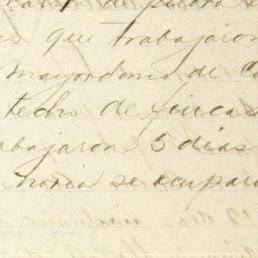 de piedra
que trabajaron
Mayordomo de Ca
techo de fincas
abajaron 5 dias
noria se ocuparo